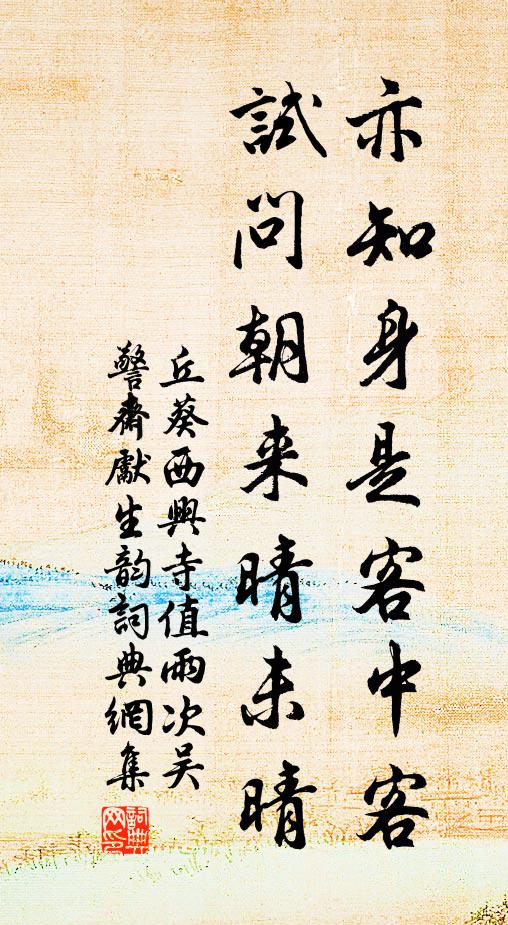 亦知身是客中客
試問朝来晴未晴
丘葵西興寺值雨次吴
警齋獻生韵詞典網集
詞典網印